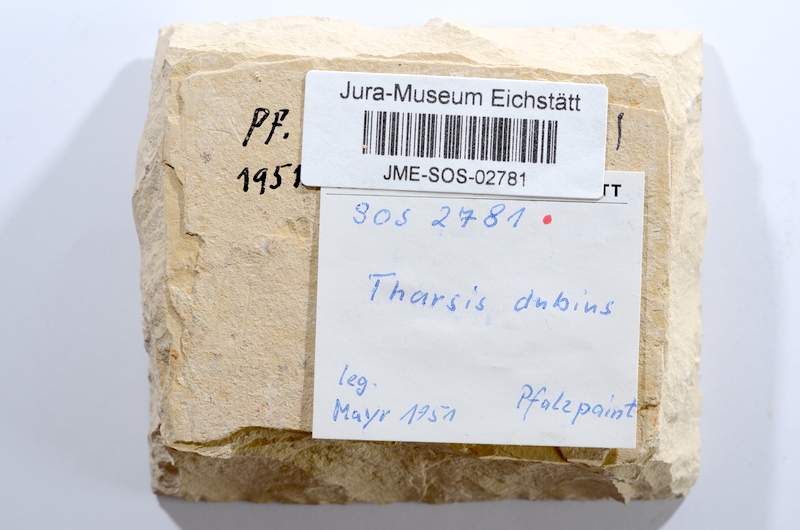 Jura-Museum Eichstätt
JME-SOS-02781
Pf.
1951
TT
SOS 2781
Tharsis dubius
leg.
Mayr 1951
Pfalzpaint